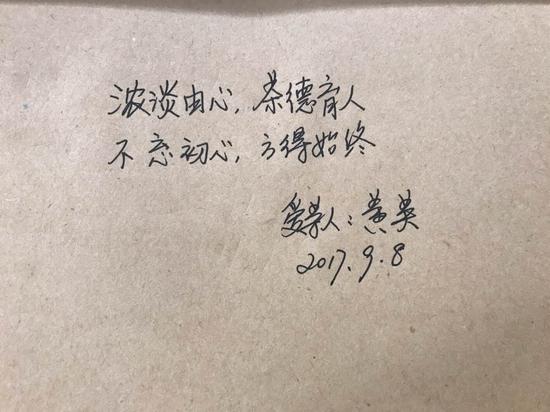 浓淡由心,茶德育人
不忘初心,方得始终
爱茶人:黄英
2017.9.8